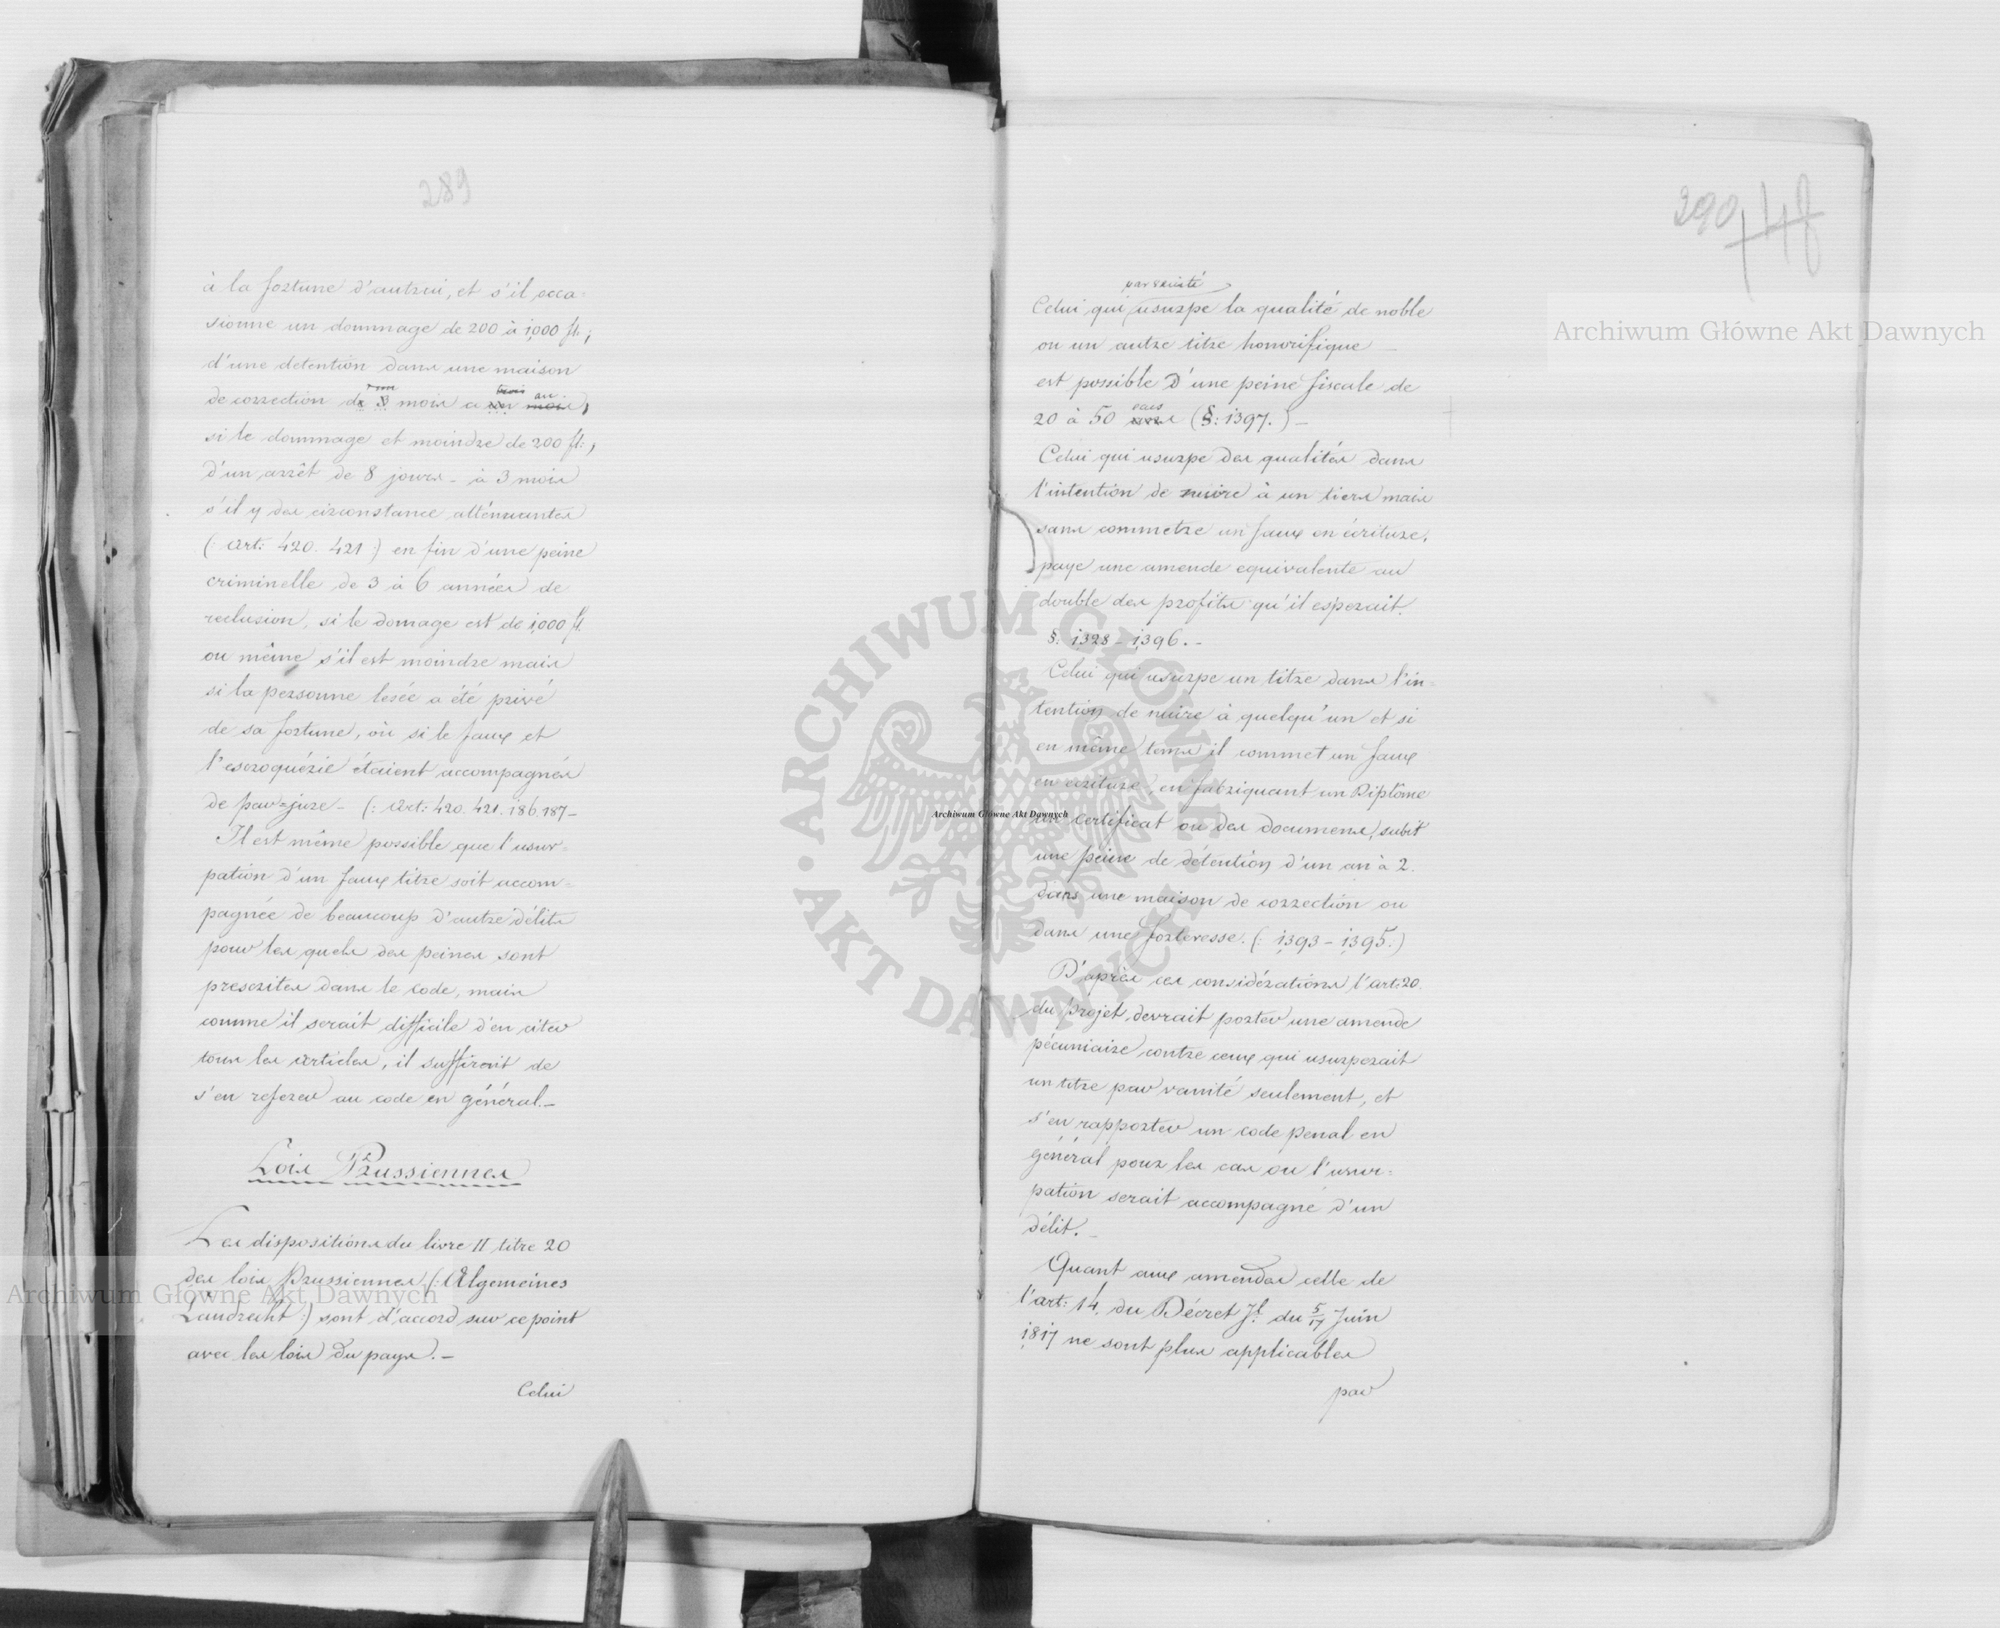 289
à la fortune d'autrui, et s'il occa=
sionne un dommage de 200 à 1000 fl:;
d'une detention dans une maison
de correction de 3 mois a un an,
si le dommage et moindre de 200 fl:,
d'un arrêt de 8 jours - à 3 mois
s'il y des circonstance atténuantes
(: Art: 420. 421 :) en fin d'une peine
criminelle de 3 à 6 années de
reclusion, si le domage est de 1000 fl.
ou même s'il est moindre mais
si la personne lesée a été privé
de sa fortune, où si le faux et
l'escroquérie étaient accompagnés
de par=jure - (: Art: 420. 421. 186. 187 -
Il est même possible que l'usur=
pation d'un faux titre soit accom=
pagnée de beaucoup d'autre délits
pour les quels des peines sont
prescrites dans le code, mais
comme il serait difficile d'en citer
tous les articles, il suffirait de
s'en referer au code en général. -
Lois Prussiennes
Les dispositions du livre II titre 20
des lois Prussiennes (: Algemeines
Landrecht :) sont d'accord sur ce point
avec les lois du pays. -
Celui
290
par vanité
Celui qui usurpe la qualité de noble
ou un autre titre honorifique -
est possible d'une peine fiscale de
20 à 50 ecus (§: 1397.) -
Celui qui usurpe des qualités dans
l'intention de nuire à un tiers mais
sans commetre un faux en écriture,
paye une amende equivalente au
double des profits qu'il esperait.
§: 1328 - 1396. -
Celui qui usurpe un titre dans l'in=
tention de nuire à quelqu'un et si
en même tems il commet un faux
en ecriture, en fabriquant un Diplôme
un certificat ou des documens, subit
une peine de détention d'un an à 2.
dans une maison de correction ou
dans une forteresse. (: 1393 - 1395:)
D'après ces considérations l'art: 20.
du projet, devrait porter une amende
pécuniaire contre ceux qui usurperait
un titre par vanité seulement, et
s'en rapporter un code penal en
général pour les cas ou l'usur=
pation serait accompagné d'un
délit. -
Quant aux amendes celle de
l'art: 14. du Décret Jl. du 5/17 Juin
1817 ne sont plus applicables
par
Archiwum Główne Akt Dawnych
Archiwum Główne Akt Dawnych
Archiwum Główne Akt Dawnych
· ARCHIWUM GŁÓWNE · AKT DAWNYCH